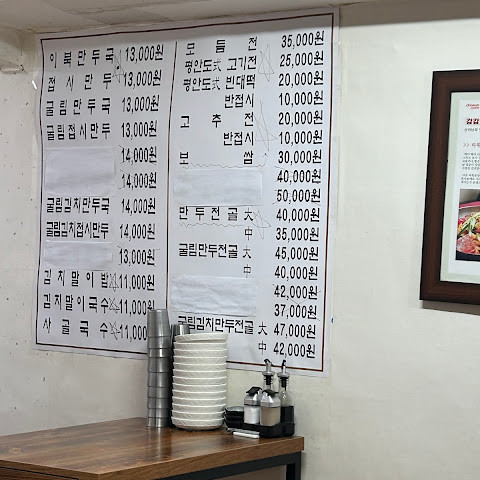 이북만두국 13,000원
접시만두 13,000원
굴림만두국 13,000원
굴림접시만두 13,000원
14,000원
14,000원
굴림김치만두국 14,000원
굴림김치접시만두 14,000원
13,000원
김치말이밥 11,000원
김치말이국수 11,000원
사골국수 11,000원
모듬전 35,000원
평안도式 고기전 25,000원
평안도式 빈대떡 20,000원
반접시 10,000원
고추전 20,000원
반접시 10,000원
보쌈 30,000원
40,000원
50,000원
만두전골 大 40,000원
中 35,000원
굴림만두전골 大 45,000원
中 40,000원
42,000원
37,000원
굴림김치만두전골 大 47,000원
中 42,000원